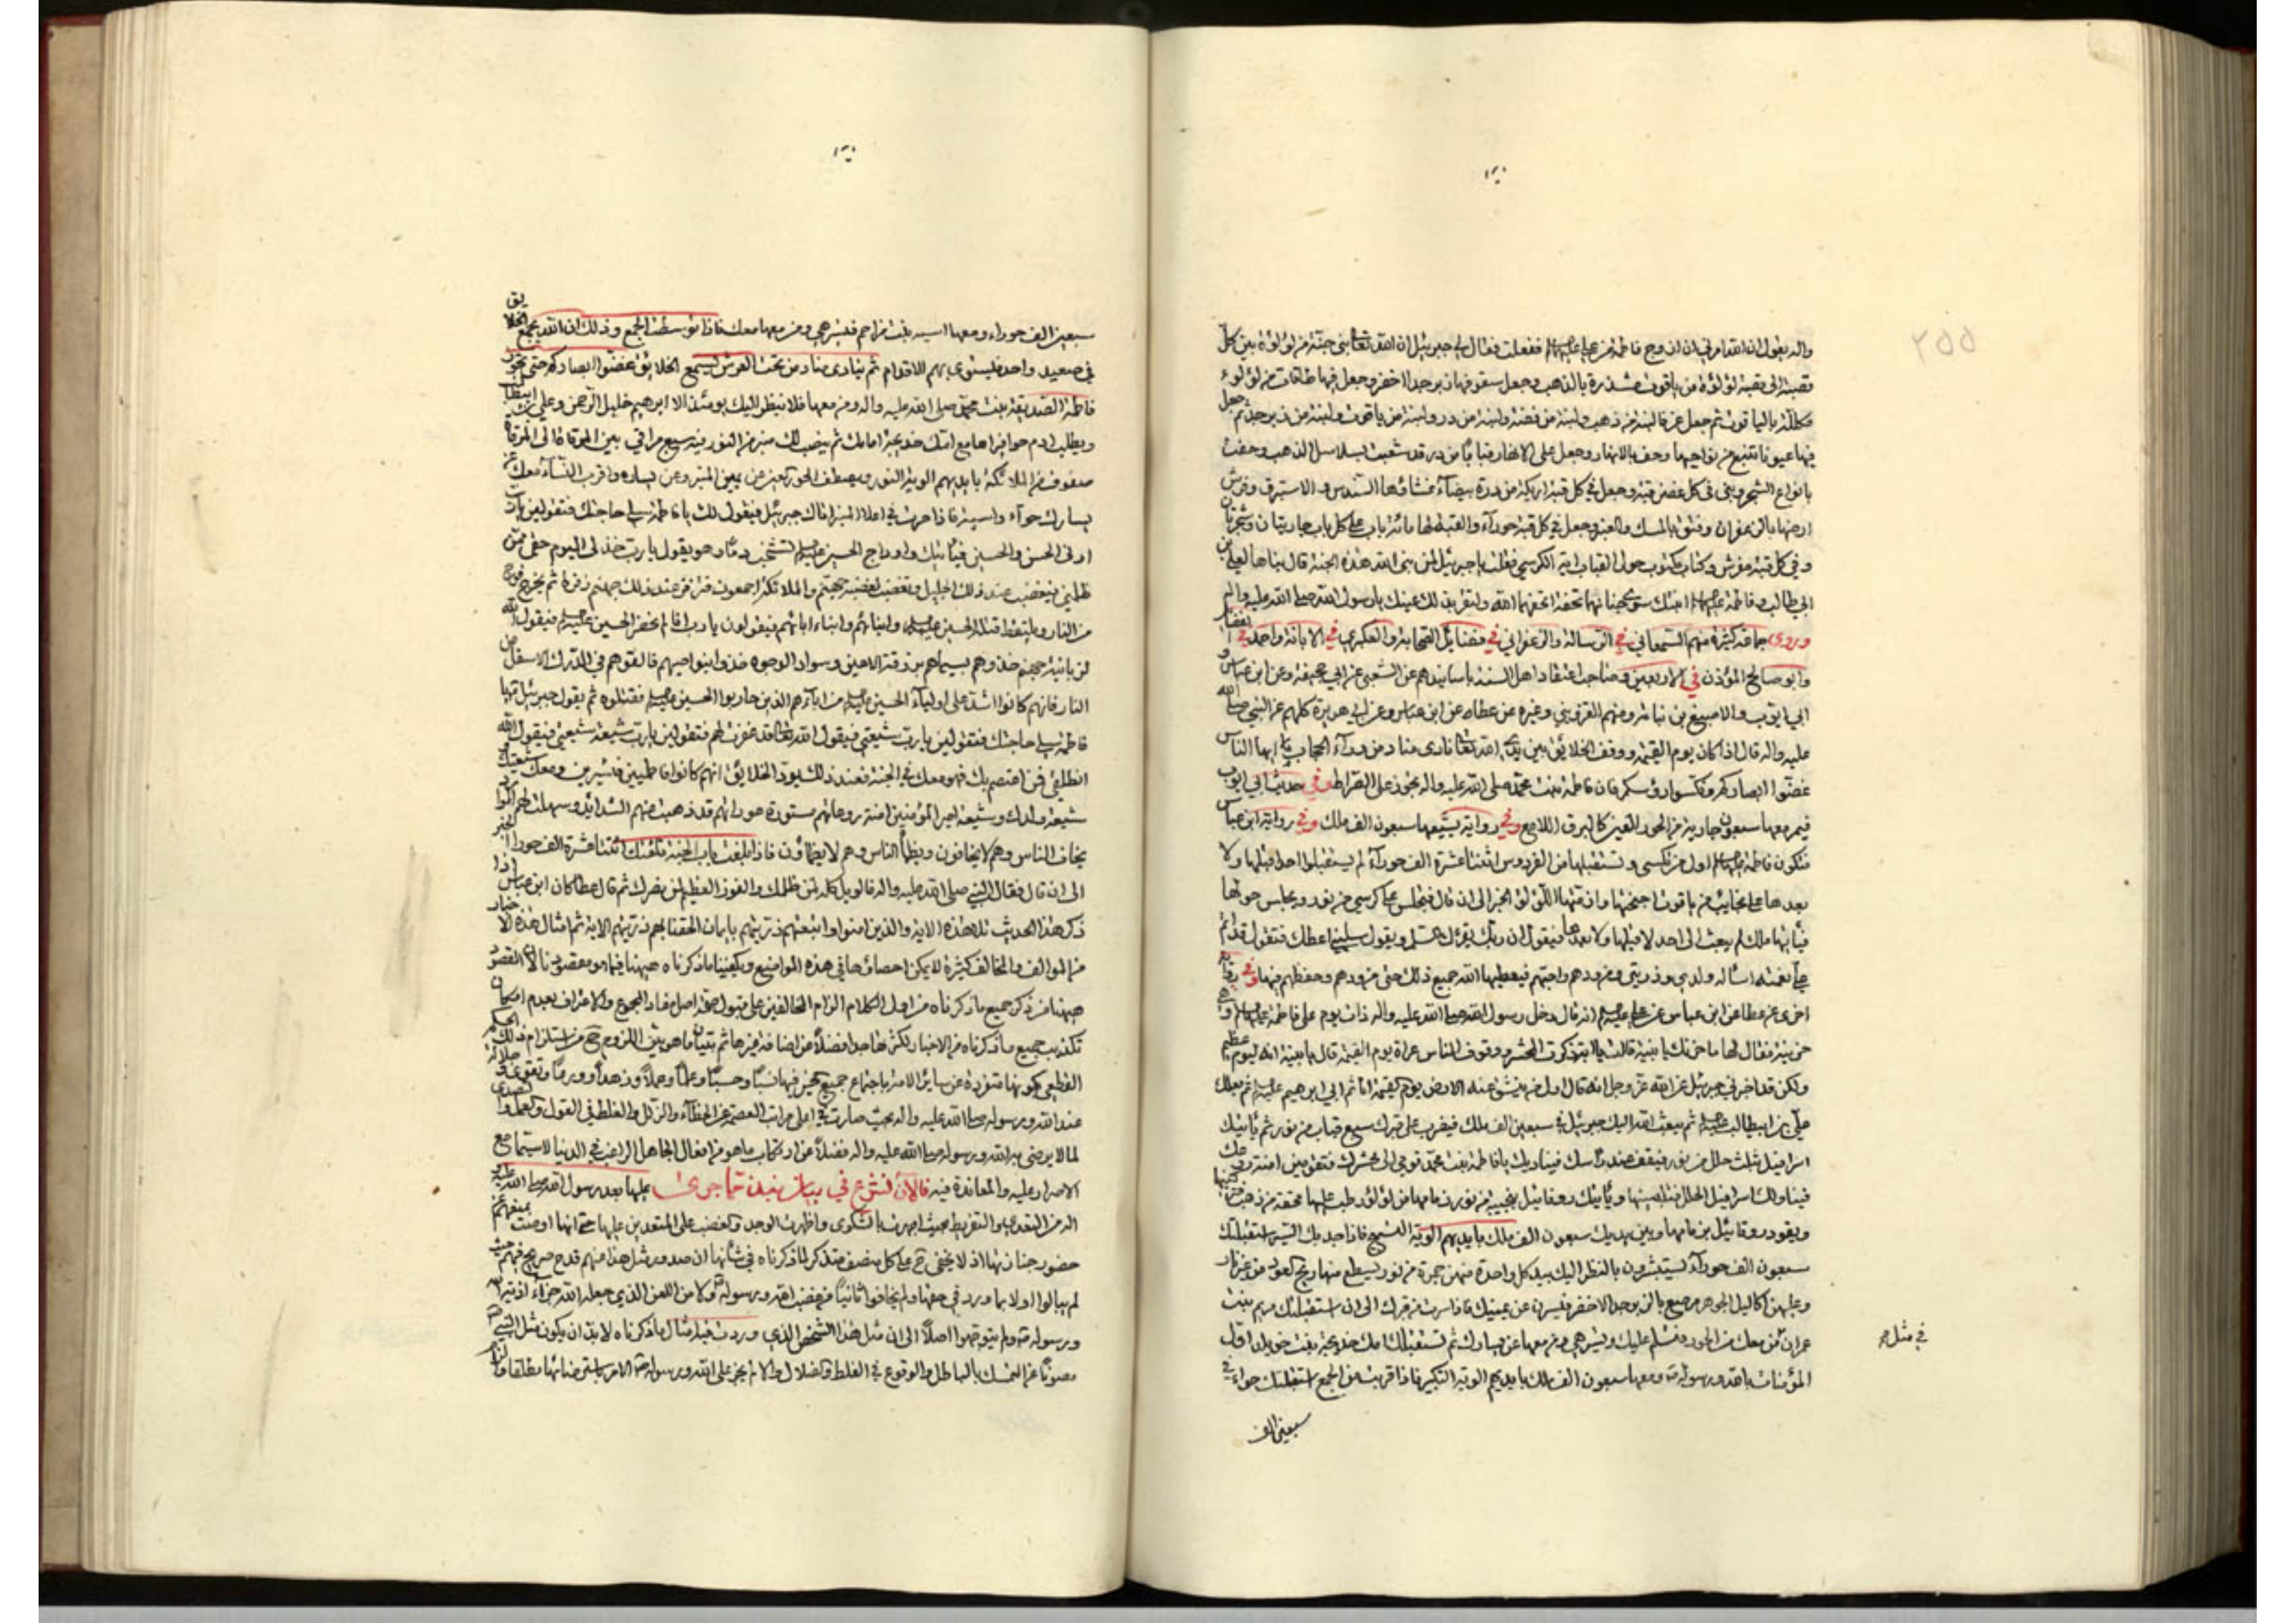 واله يقول ان الله امرني ان ازوج فاطمة من علي عليهما ففعلت فقال لي جبرئيل ان الله تعالى بنى جنة من لؤلؤة بين كل
قصبة الى قصبة لؤلؤة من ياقوت مشذرة بالذهب وجعل سقوفها زبرجدا اخضر وجعل فيها طاقات من لؤلؤ
مكللة بالياقوت ثم جعل غرفا لبنة من ذهب ولبنة من فضة ولبنة من در ولبنة من ياقوت ولبنة من زبرجد ثم جعل
فيها عيونا تنبع من نواحيها وحف بالانهار وجعل على الانهار قبابا من در قد شعبت بسلاسل الذهب وحفت
بانواع الشجر وبنى في كل غصن قبة وجعل في كل قبة اريكة من درة بيضاء غشاؤها السندس والاستبرق وفرش
ارضها بالزعفران وفتق بالمسك والعنبر وجعل في كل قبة حوراء والقبة لها مائة باب على كل باب جاريتان وشجرتان
وفي كل قبة مفرش وكتاب مكتوب حول القباب اية الكرسي فقلت يا جبرئيل لمن بنى الله هذه الجنة قال بناها لعلي بن
ابي طالب وفاطمة ابنتك سوى جنانهما تحفة اتحفهما الله ولتقر بذلك عينك يا رسول الله صلى الله عليه واله
وروى جماعة كثيرة منهم السمعاني في الرسالة والزعفراني في فضائل الصحابة والعكبري في الابانة واحمد في الفضائل
وابو صالح المؤذن في الاربعين وصاحب اعتقاد اهل السنة باسانيدهم عن الشعبي عن ابي جحيفة وعن ابن عباس و
ابي ايوب والاصبغ بن نباتة ومنهم القزويني وغيره عن عطاء عن ابن عباس وعن ابي هريرة كلهم عن النبي صلى الله
عليه واله قال اذا كان يوم القيمة ووقف الخلائق بين يدي الله تعالى نادى مناد من وراء الحجاب يا ايها الناس
غضوا ابصاركم ونكسوا رؤسكم فان فاطمة بنت محمد صلى الله عليه واله تجوز على الصراط وفي حديث ابي ايوب
فيمر معها سبعون جارية من الحور العين كالبرق اللامع وفي رواية يشيعها سبعون الف ملك وفي رواية ابن عباس
فتكون فاطمة اول من تكسى وتستقبلها من الفردوس اثنتا عشرة الف حوراء لم يستقبلوا احدا قبلها ولا
بعدها على نجائب من ياقوت اجنحتها وازمتها اللؤلؤ الخبر الى ان قال فتجلس على كرسي من نور ويجلس حولها
فيأتيها ملك لم يبعث الى احد قبلها ولا بعدها فيقول ان ربك يقرئك السلام ويقول سليني اعطك فتقول قد اتم
علي نعمته اسأله ولدي وذريتي ومن ودهم واحبهم فيعطيها الله جميع ذلك حتى من ودهم وحفظهم فيها وفي رواية
اخرى عن عطا عن ابن عباس عن علي انه قال دخل رسول الله صلى الله عليه واله ذات يوم على فاطمة وهي
حزينة فقال لها ما حزنك يا بنية قالت يا ابت ذكرت المحشر ووقوف الناس عراة يوم القيمة قال يا بنية انه ليوم عظيم
ولكن قد اخبرني جبرئيل عن الله عز وجل انه قال اول من ينشق عنه الارض يوم القيمة انا ثم ابي ابرهيم ثم بعلك
علي بن ابيطالب ثم يبعث الله اليك جبرئيل في سبعين الف ملك فيضرب على قبرك سبع قباب من نور ثم يأتيك
اسرافيل بثلث حلل من نور فيقف عند رأسك فيناديك يا فاطمة بنت محمد قومي الى محشرك فتقومين امنة روعتك
فيناولك اسرافيل الحلل فتلبسينها ويأتيك روفائيل بنجيبة من نور زمامها من لؤلؤ رطب عليها محفة من ذهب فتركبينها
ويقود روفائيل بزمامها وبين يديك سبعون الف ملك بايديهم الوية التسبيح فاذا جد بك السير استقبلتك
سبعون الف حوراء يستبشرن بالنظر اليك بيد كل واحدة منهن مجمرة من نور يسطع منها ريح العود من غير نار
وعليهن اكاليل الجوهر مرصع بالزبرجد الاخضر فيسرن عن يمينك فاذا سرت من قبرك الى ان استقبلتك مريم بنت
عمران في مثل من معك من الحور فتسلم عليك وتسير هي ومن معها عن يسارك ثم تستقبلك امك خديجة بنت خويلد اول
المؤمنات بالله ورسوله ومعها سبعون الف ملك بايديهم الوية التكبير فاذا قربت من الجمع استقبلتك حواء في
في مثل
سبعين الف
سبعين الف حوراء ومعها اسية بنت مزاحم فتسير هي ومن معها معك فاذا توسطت الجمع وذلك ان الله يجمع الخلايق
في صعيد واحد فيستوي بهم الاقدام ثم ينادى مناد من تحت العرش يسمع الخلائق غضوا ابصاركم حتى تجوز
فاطمة الصديقة بنت محمد صلى الله عليه واله ومن معها فلا ينظر اليك يومئذ الا ابرهيم خليل الرحمن وعلي بن ابيطالب
ويطلب ادم حواء فيراها مع امك خديجة امامك ثم ينصب لك منبر من النور فيه سبع مراقي بين المرقاة الى المرقاة
صفوف من الملائكة بايديهم الوية النور ويصطف الحور العين عن يمين المنبر وعن يساره واقرب النساء معك عن
يسارك حواء واسية فاذا صرت في اعلا المنبر اتاك جبرئيل فيقول لك يا فاطمة سلي حاجتك فتقولين يا رب
ارني الحسن والحسين فيأتيك واوداج الحسين تشخب دما وهو يقول يا رب خذ لي اليوم حقي ممن
ظلمني فيغضب عند ذلك الجليل وتغضب لغضبه جهنم والملائكة اجمعون فتزفر عند ذلك جهنم زفرة ثم يخرج فوج
من النار ويلتقط قتلة الحسين وابنائهم وابناء ابنائهم فيقولون يا رب انا لم نحضر الحسين فيقول الله
لزبانية جهنم خذوهم بسيماهم بزرقة الاعين وسواد الوجوه خذوا بنواصيهم فالقوهم في الدرك الاسفل من
النار فانهم كانوا اشد على اولياء الحسين من ابائهم الذين حاربوا الحسين فقتلوه ثم يقول جبرئيل يا
فاطمة سلي حاجتك فتقولين يا رب شيعتي فيقول الله تعالى قد غفرت لهم فتقولين يا رب شيعة شيعتي فيقول الله
انطلقي فمن اعتصم بك فهو معك في الجنة فعند ذلك يود الخلائق انهم كانوا فاطميين فتسيرين ومعك شيعتك و
شيعة ولدك وشيعة امير المؤمنين امنة روعاتهم مستورة عوراتهم قد ذهبت عنهم الشدائد وسهلت لهم الموارد
يخاف الناس وهم لا يخافون ويظمأ الناس وهم لا يظمأون فاذا بلغت باب الجنة تلقتك اثنتا عشرة الف حوراء الخبر
الى ان قال فقال النبي صلى الله عليه واله فالويل كله لمن ظلمك والفوز العظيم لمن نصرك ثم قال عطا كان ابن عباس اذا
ذكر هذا الحديث تلا هذه الاية والذين امنوا واتبعتهم ذريتهم بايمان الحقنا بهم ذريتهم الاية ثم امثال هذه الاخبار
من الموالف والمخالف كثيرة لا يمكن احصاؤها في هذه المواضع ويكفينا ما ذكرناه هيهنا فيما هو مقصودنا لان المقصود
هيهنا من ذكر جميع ما ذكرناه من اول الكلام الزام المخالفين على قبول صحة اصل مفاد المجموع والاعتراف بعدم امكان
تكذيب جميع ما ذكرناه من الاخبار لكثرتها جدا فضلا عن اضافة غيرها ثم تبيان ما هو بين اللزوم من استلزام ذلك الحكم
القطعي بكونها متفردة عن سائر الامة باجتماع جميع الخير فيها نسبا وحسبا وعلما وعملا وزهدا وورعا وتقوى وجلالة
عند الله ورسوله صلى الله عليه واله بحيث صارت في اعلى مراتب العصمة عن الخطاء والزلل والغلط في القول والعمل
لما لا يرضى به الله ورسوله صلى الله عليه واله فضلا عن ارتكاب ما هو من افعال الجاهل الراغب في الدنيا لا سيما مع
الاصرار عليه والمعاندة فيه فالان نشرع في بيان نبذ مما جرى عليها بعد رسول الله صلى الله عليه و
اله من التعدي والتفريط بحيث اجهرت بالشكوى واظهرت الوجد والغضب على المتعدين عليها حتى انها اوصت بمنعهم عن
حضور جنازتها اذ لا يخفى على كل منصف متذكر لما ذكرناه في شأنها ان صدور مثل هذا منهم قدح صريح فيهم حيث
لم يبالوا اولا بما ورد في حقها ولم يخافوا ثانيا من غضب الله ورسوله ولا من اللعن الذي جعله الله جزاء اذية الله
ورسوله ولم يتوهموا اصلا الى ان مثل هذا الشخص الذي وردت فيه امثال ما ذكرناه لا بد ان يكون مثل النبي
مصونا عن التمسك بالباطل والوقوع في الغلط والضلال والا لم يجز على الله ورسوله الامر باسترضائها مطلقا